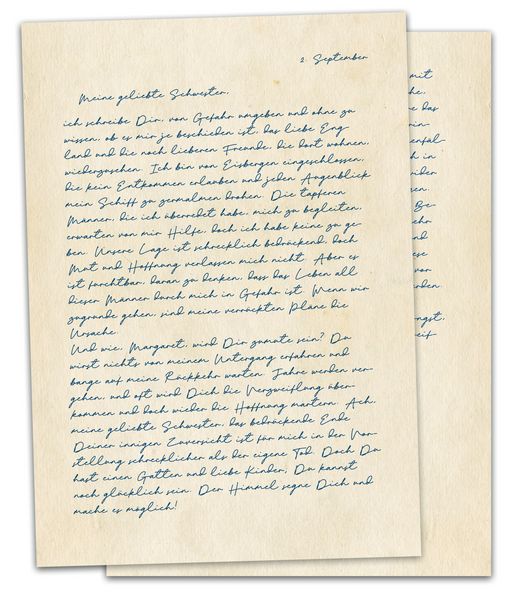 2. September
Meine geliebte Schwester,
ich schreibe Dir, von Gefahr umgeben und ohne zu
wissen, ob es mir je beschieden ist, das liebe Eng-
land und die noch lieberen Freunde, die dort wohnen,
wiederzusehen. Ich bin von Eisbergen eingeschlossen,
die kein Entkommen erlauben und jeden Augenblick
mein Schiff zu zermalmen drohen. Die tapferen
Männer, die ich überredet habe, mich zu begleiten,
erwarten von mir Hilfe, doch ich habe keine zu ge-
ben. Unsere Lage ist schrecklich bedrückend, doch
Mut und Hoffnung verlassen mich nicht. Aber es
ist furchtbar, daran zu denken, dass das Leben all
dieser Männer durch mich in Gefahr ist. Wenn wir
zugrunde gehen, sind meine verrückten Pläne die
Ursache.
Und wie, Margaret, wird Dir zumute sein? Du
wirst nichts von meinem Untergang erfahren und
bange auf meine Rückkehr warten. Jahre werden ver-
gehen, und oft wird Dich die Verzweiflung über-
kommen und doch wieder die Hoffnung martern. Ach,
meine geliebte Schwester, das bedrückende Ende
Deiner innigen Zuversicht ist für mich in der Vor-
stellung schrecklicher als der eigene Tod. Doch Du
hast einen Gatten und liebe Kinder, Du kannst
noch glücklich sein. Der Himmel segne Dich und
mache es möglich!
mit
he,
e das
rin-
enfäl-
h in
ider
en,
Be-
ehr
nd
ese
vor
rden.
ngst,
eif-